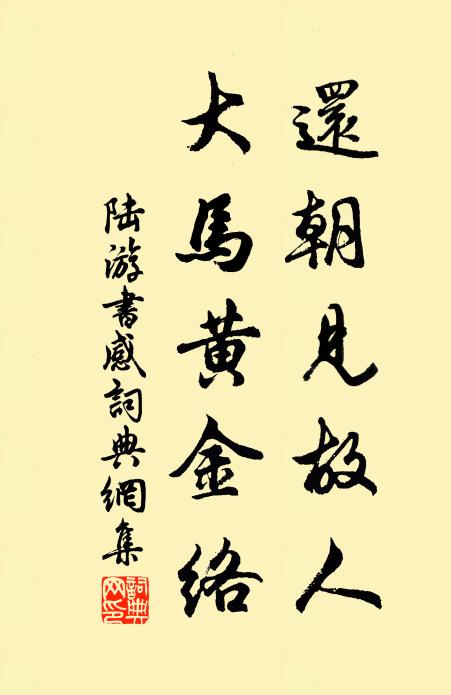 還朝見故人
大馬黃金絡
陆游書感詞典網集
詞典